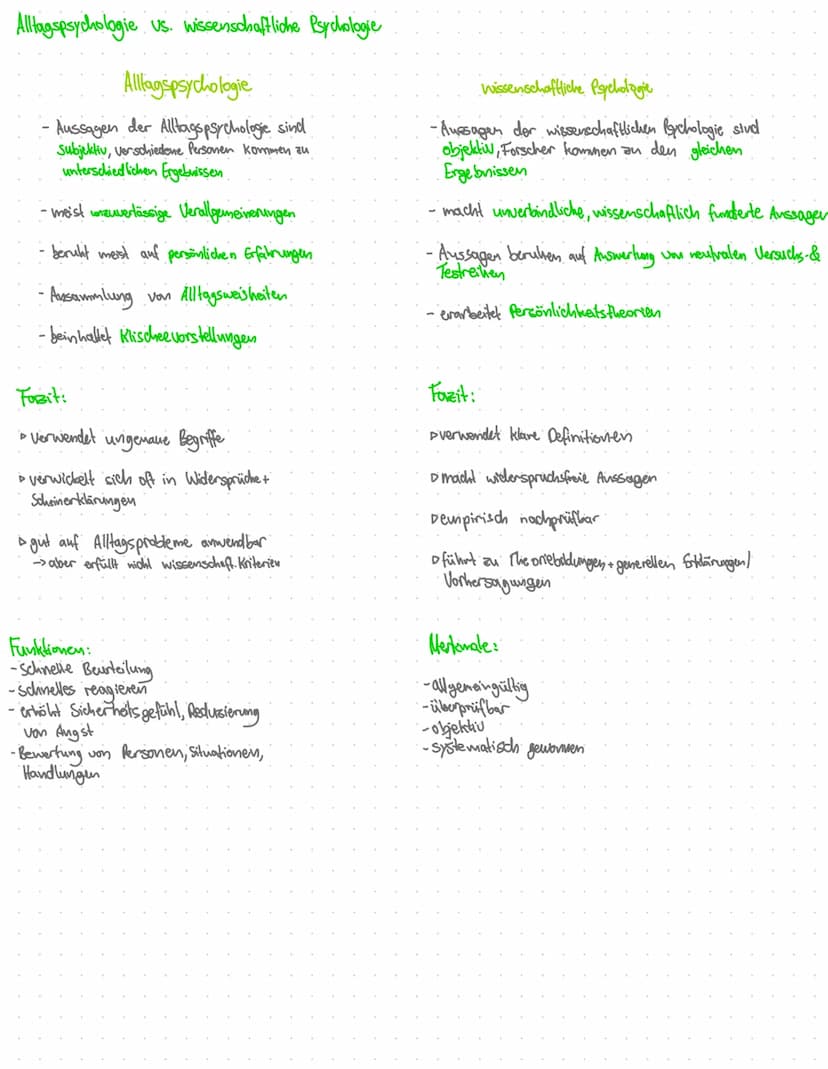 Alltagspsychologie vs. wissenschaftliche Psychologie
Alltagspsychologie
- Aussagen der Alltagspsychologie sind
subjektiv, verschiedene Personen kommen zu
unterschiedlichen Ergebnissen
- meist unzuverlässige Verallgemeinerungen
- beruht meist auf persönlichen Erfahrungen
- Ansammlung von Alltagsweisheiten
- beinhaltet Klischeevorstellungen
Fazit:
▹ verwendet ungenaue Begriffe
▹ verwickelt sich oft in Widersprüche +
Scheinerklärungen
▹ gut auf Alltagsprobleme anwendbar
→ aber erfüllt nicht wissenschaft. Kriterien
Funktionen:
- Schnelle Beurteilung
- schnelles reagieren
- erhöht Sicherheitsgefühl, Reduzierung
von Angst
- Bewertung von Personen, Situationen,
Handlungen
wissenschaftliche Psychologie
- Aussagen der wissenschaftlichen Psychologie sind
objektiv, Forscher kommen zu den gleichen
Ergebnissen
- macht unverbindliche, wissenschaftlich fundierte Aussagen
- Aussagen beruhen auf Auswertung von neutralen Versuchs- &
Testreihen
- erarbeitet Persönlichkeitstheorien
Fazit:
▹ verwendet klare Definitionen
▹ macht widerspruchsfreie Aussagen
▹ empirisch nachprüfbar
▹ führt zu Theoriebildungen + generellen Erklärungen/
Vorhersagungen
Merkmale:
- allgemeingültig
- überprüfbar
- objektiv
- systematisch gewonnen